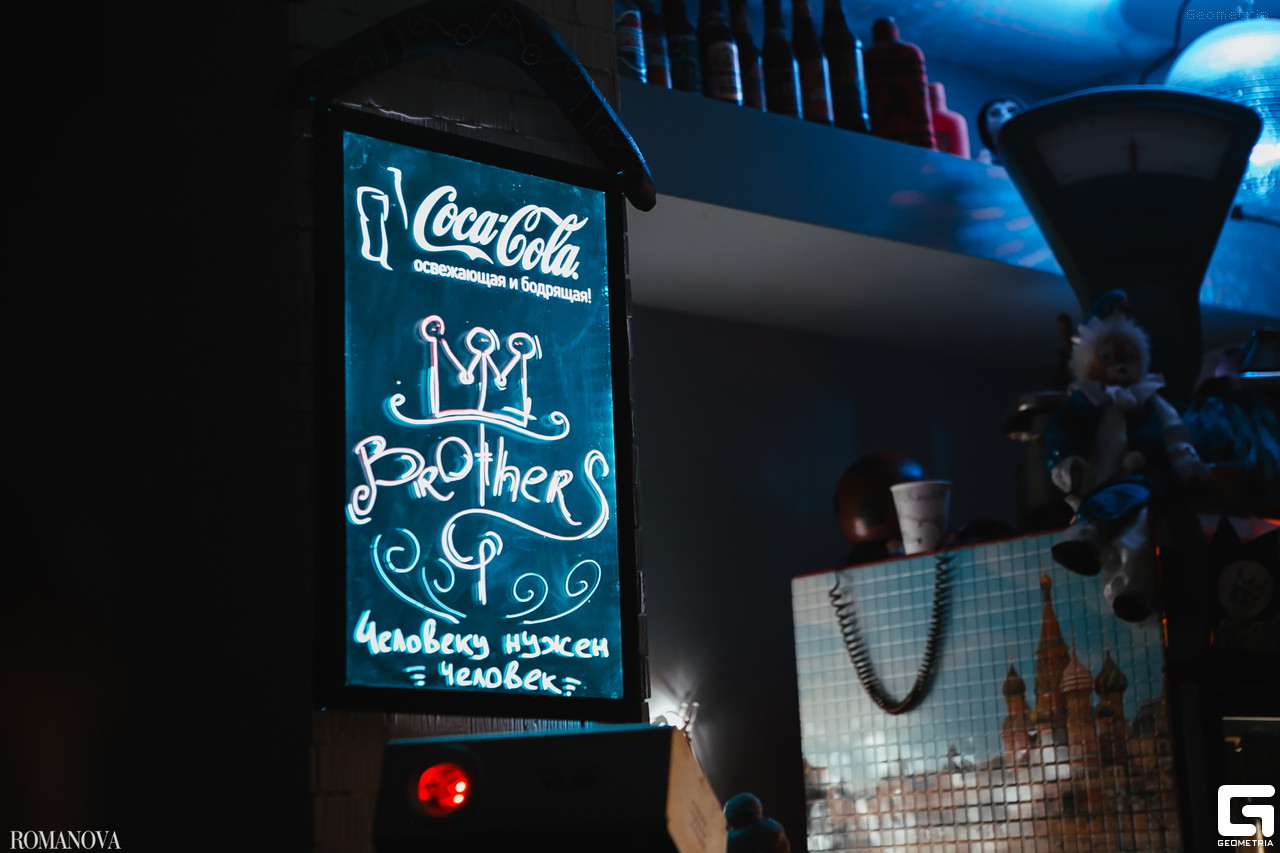 Geometria
Coca-Cola
освежающая и бодрящая!
BrOtherS
Человеку нужен
человек
ROMANOVA
GEOMETRIA